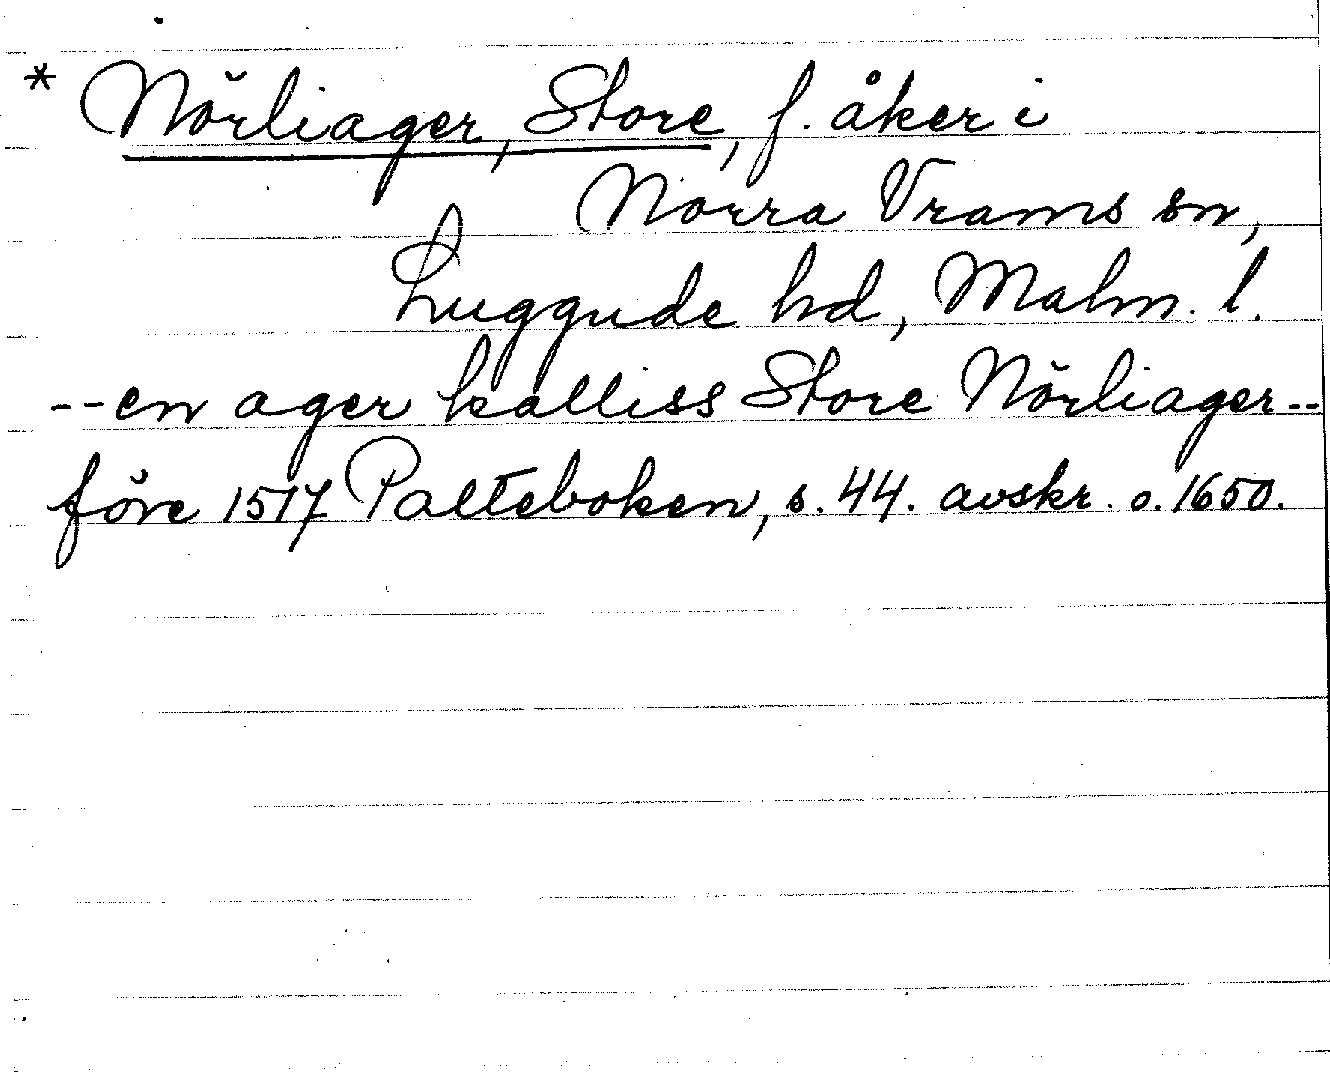 * Nörliager, Store, f. åker i
Norra Vrams sn,
Luggude hd, Malm. l.
-- en ager kalliss Store Nörliager --
före 1517 Palteboken, s. 44. avskr. o. 1650.